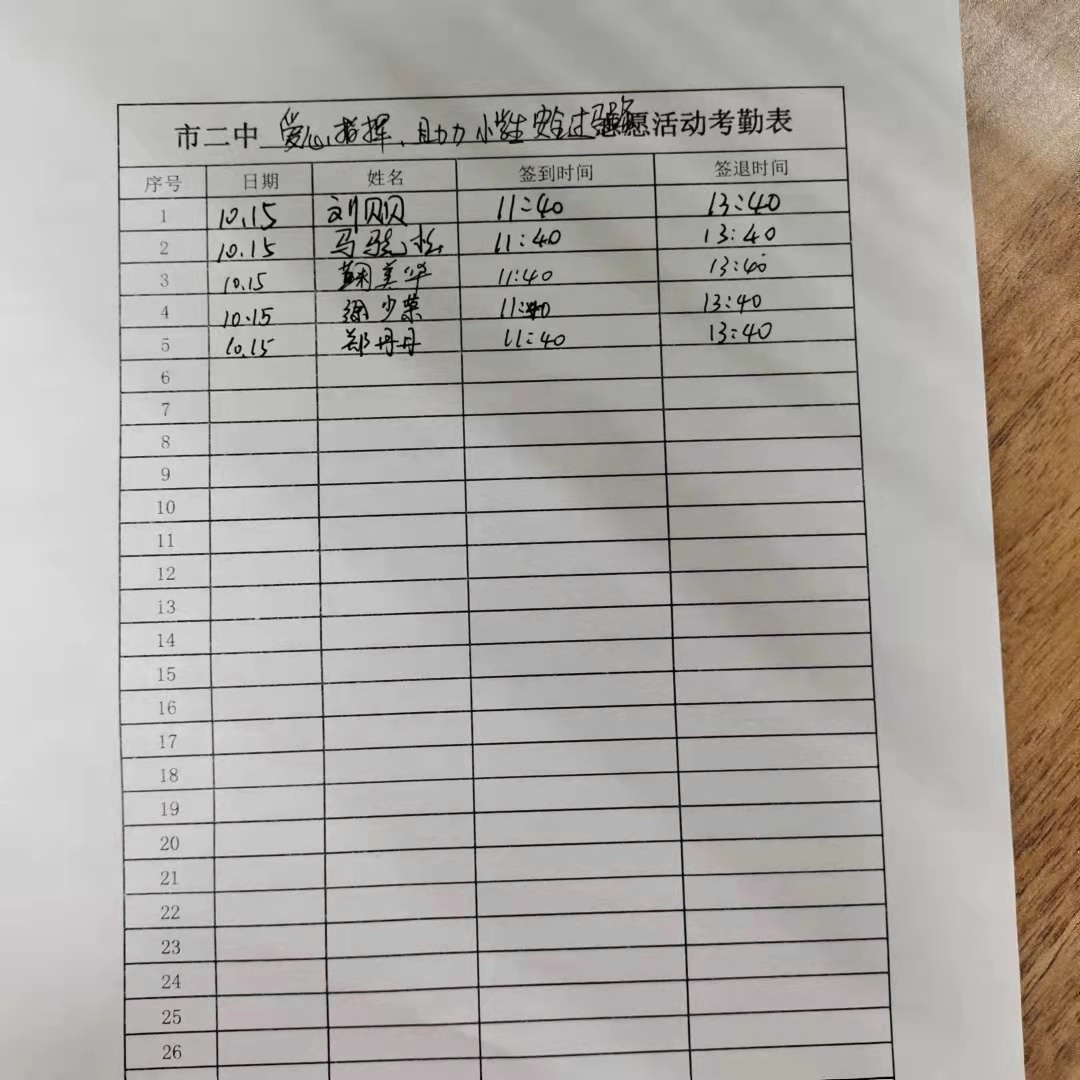 市二中 爱心指挥、助力小学生安全过马路 志愿活动考勤表
序号 日期 姓名 签到时间 签退时间
1 10.15 刘贝贝 11:40 13:40
2 10.15 马 11:40 13:40
3 10.15 美华 11:40 13:40
4 10.15 少荣 11:40 13:40
5 10.15 郑丹丹 11:40 13:40
6
7
8
9
10
11
12
13
14
15
16
17
18
19
20
21
22
23
24
25
26